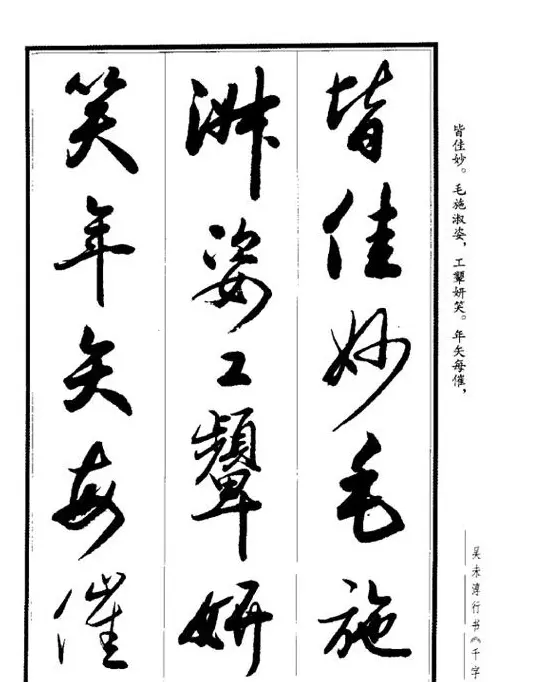 皆佳妙毛施
淑姿工颦妍
笑年矢每催
皆佳妙。毛施淑姿，工颦妍笑。年矢每催，
吴未淳行书《千字